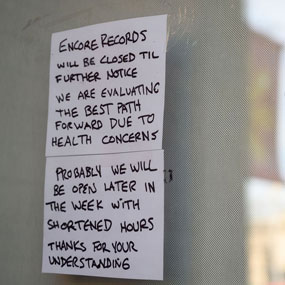 ENCORE RECORDS
WILL BE CLOSED TIL
FURTHER NOTICE
WE ARE EVALUATING
THE BEST PATH
FORWARD DUE TO
HEALTH CONCERNS
PROBABLY WE WILL
BE OPEN LATER IN
THE WEEK WITH
SHORTENED HOURS
THANKS FOR YOUR
UNDERSTANDING